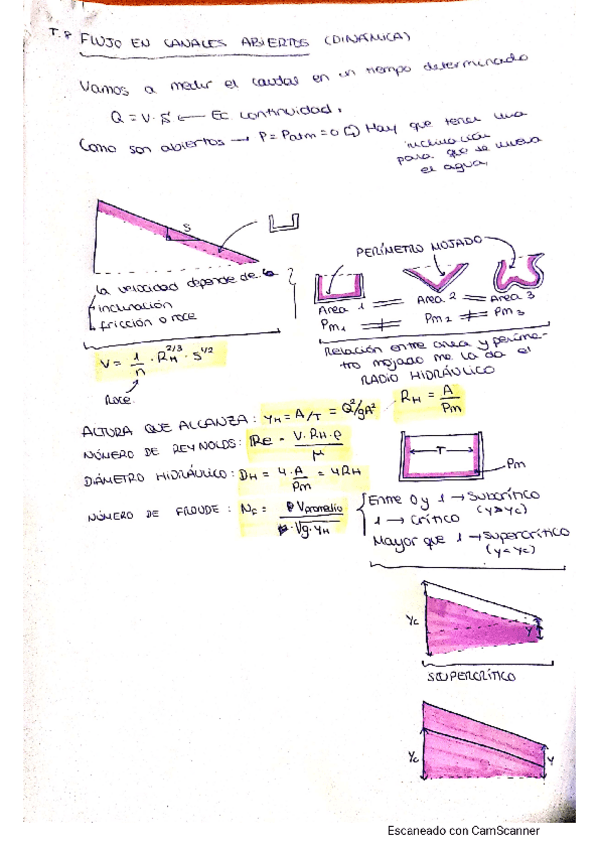 T.8 FLUJO EN CANALES ABIERTOS (DINÁMICA)
Vamos a medir el caudal en un tiempo determinado
Q = V · S ← Ec continuidad.
Como son abiertos → P = Patm = 0 Hay que tener una
inclinación
para que se mueva
el agua.
S
PERÍMETRO MOJADO
La velocidad depende de la
inclinación
fricción o roce
Area 1 = Area 2 = Area 3
Pm1 ≠ Pm2 ≠ Pm3
Relación entre area y períme-
tro mojado me la da el
RADIO HIDRÁULICO
V = 1/n · RH^2/3 · S^1/2
Roce.
RH = A/Pm
ALTURA QUE ALCANZA: yH = A/T = Q²/gA²
NÚMERO DE REYNOLDS: Re = V · RH · ρ / μ
DIÁMETRO HIDRÁULICO: DH = 4 · A/Pm = 4RH
T
Pm
NÚMERO DE FROUDE: NF = Vpromedio / √g · yH
Entre 0 y 1 → Subcrítico
(y>yc)
1 → Crítico
Mayor que 1 → Supercrítico
(y<yc)
yc
y
SUPERCRÍTICO
yc
y
Escaneado con CamScanner